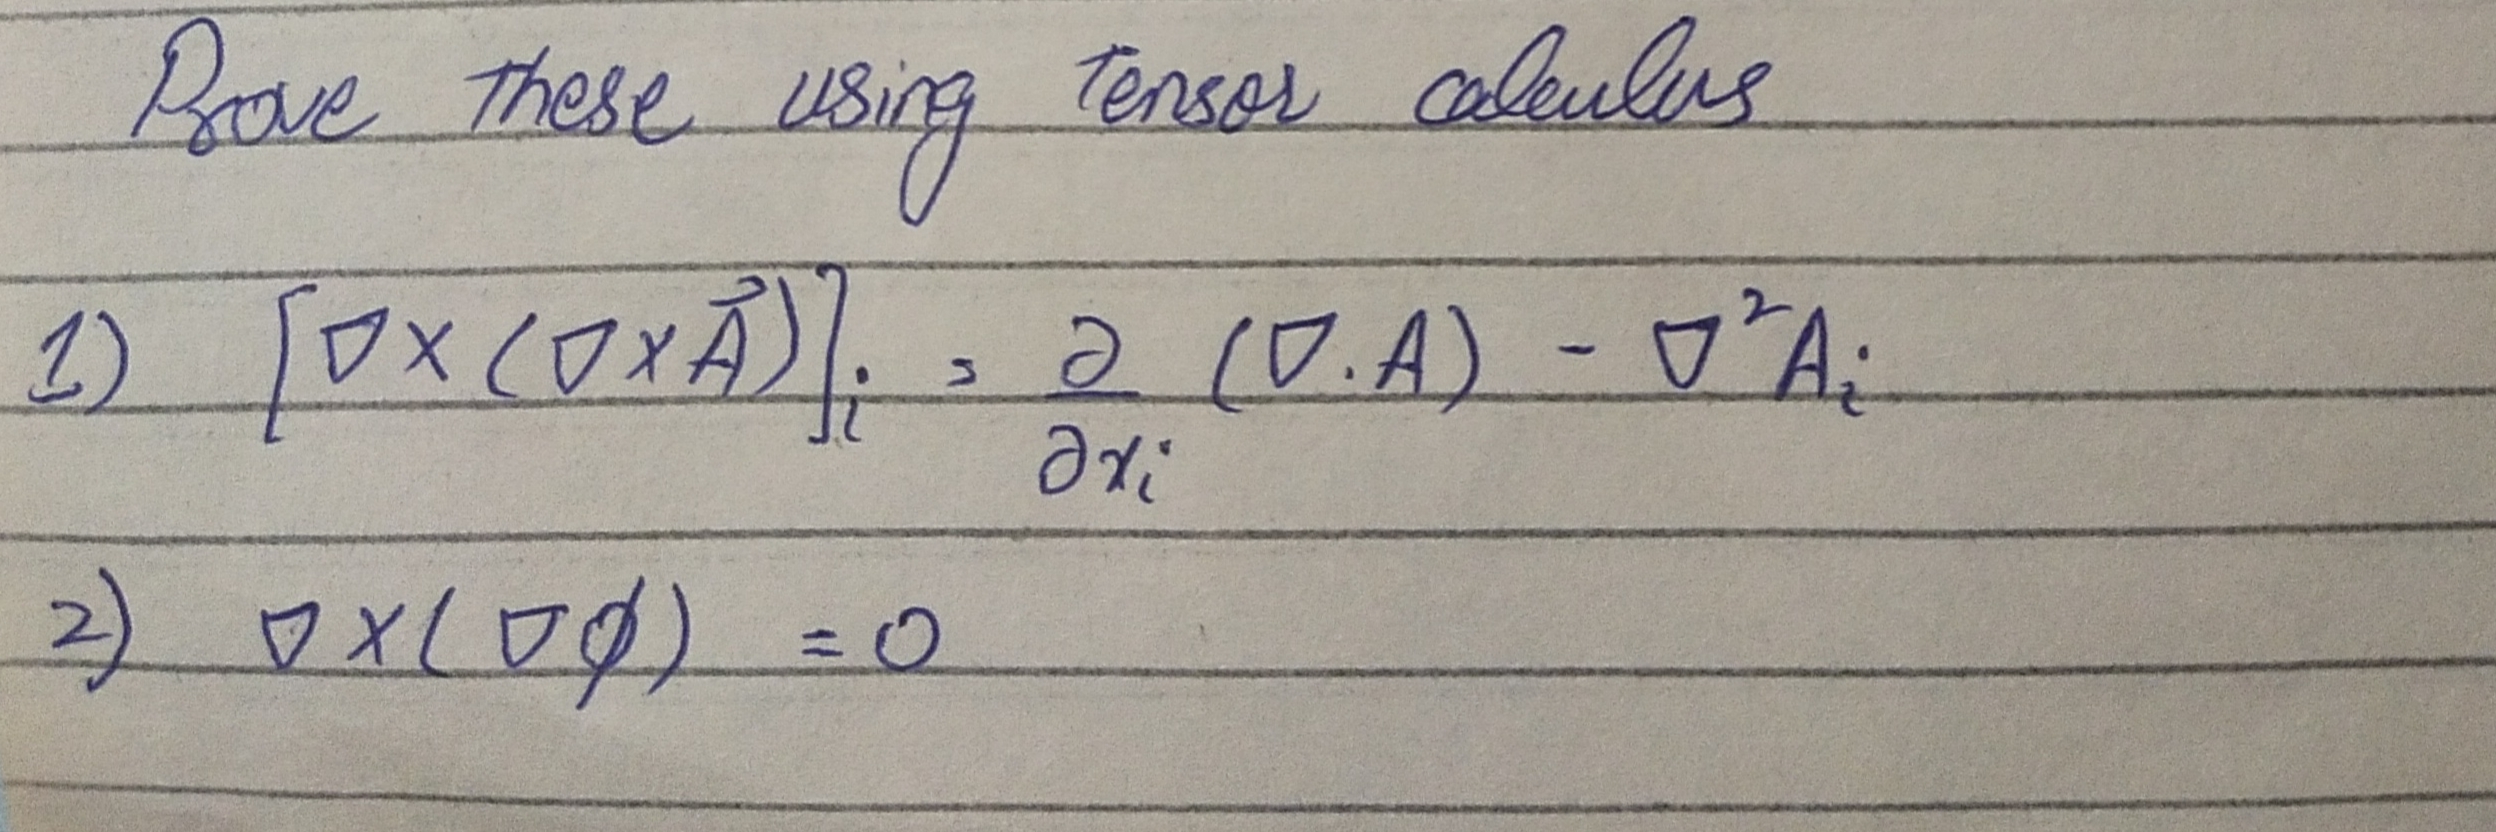 Prove These using Tensor calculus
1) [∇×(∇×A⃗)]ᵢ = ∂/∂xᵢ (∇.A) - ∇²Aᵢ
2) ∇×(∇ϕ) = 0